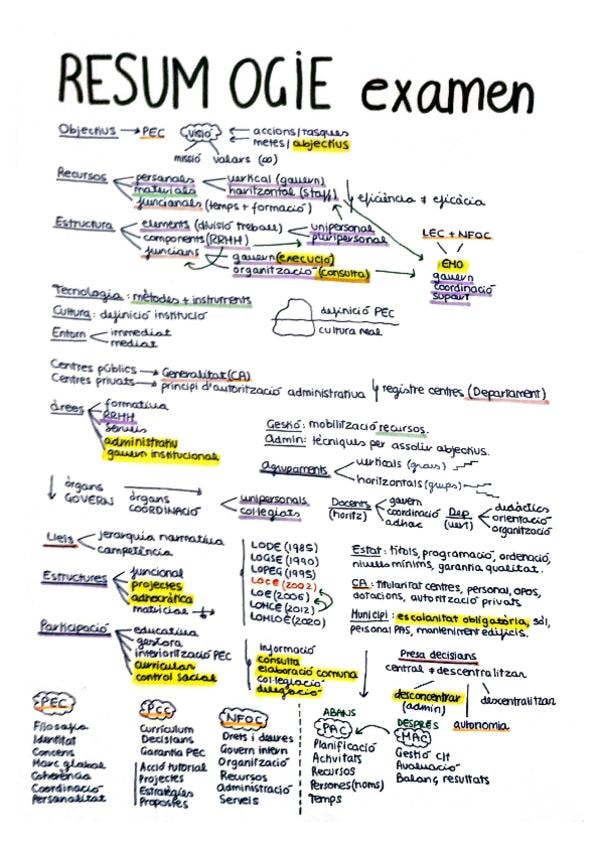 RESUM OGIE examen
Objectius → PEC visió ← accions/tasques
metes/objectius
missió valors (∞)
Recursos personals vertical (govern)
materials horitzontal (staff) eficiència ≠ eficàcia
funcionals (temps + formació)
Estructura elements (divisió treball) unipersonal
components (RRHH) pluripersonal
funcions govern (execució)
organització (consulta)
LEC + NFOC
EMO
govern
coordinació
suport
Tecnologia: mètodes + instruments
Cultura: definició institució
Entorn immediat
mediat
definició PEC
cultura real
Centres públics → Generalitat (CA)
Centres privats → principi d'autorització administrativa registre centres (Departament)
àrees formativa
RRHH
serveis
administratiu
govern institucional
Gestió: mobilització recursos.
Admin: tècniques per assolir objectius.
Agrupaments verticals (graus)
horitzontals (grups)
òrgans GOVERN
òrgans COORDINACIÓ
unipersonals
col·legiats
Docents (horitz) govern
coordinació
adhoc
Dep. (vert) didàctics
orientació
organització
Lleis jerarquia normativa
competència
LODE (1985)
LOGSE (1990)
LOPEG (1995)
LOCE (2002)
LOE (2006)
LOMCE (2012)
LOMLOE (2020)
Estat: títols, programació, ordenació,
nivells mínims, garantia qualitat.
CA: titularitat centres, personal, opos,
dotacions, autorització privats
Municipi: escolaritat obligatòria, sòl,
personal PAS, manteniment edificis.
Estructures funcional
projectes
adhocràtica
matricial
Participació educativa
gestora
interiorització PEC
curricular
control social
informació
consulta
elaboració comuna
col·legiació
delegació
Presa decisions
central ≠ descentralitzar
desconcentrar (admin)
descentralitzar
autonomia
PEC
Filosofia
Identitat
Consens
Marc global
Coherència
Coordinació
Personalitat
PCC
Currículum
Decisions
Garantia PEC
Acció tutorial
Projectes
Estratègies
Propostes
NFOC
Drets i deures
Govern intern
Organització
Recursos
Administració
Serveis
ABANS
PAC
Planificació
Activitats
Recursos
Persones (noms)
Temps
DESPRÉS
MAC
Gestió clt
Avaluació
Balanç resultats